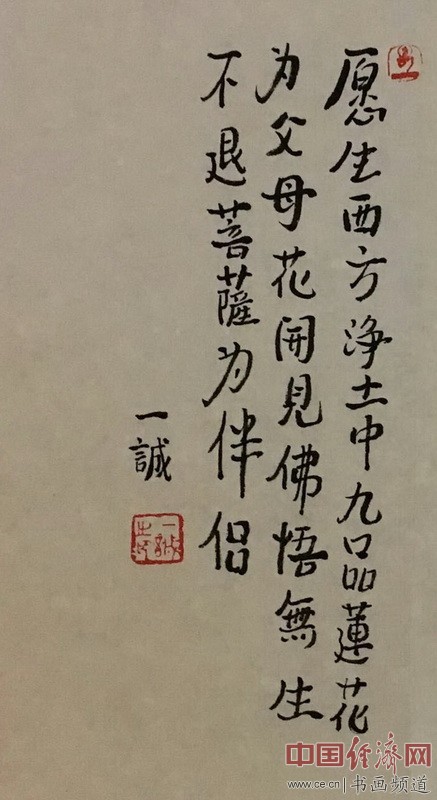 愿生西方浄土中九品蓮花
为父母花開見佛悟無生
不退菩薩为伴侣
一誠
中国经济网
www.ce.cn|书画频道